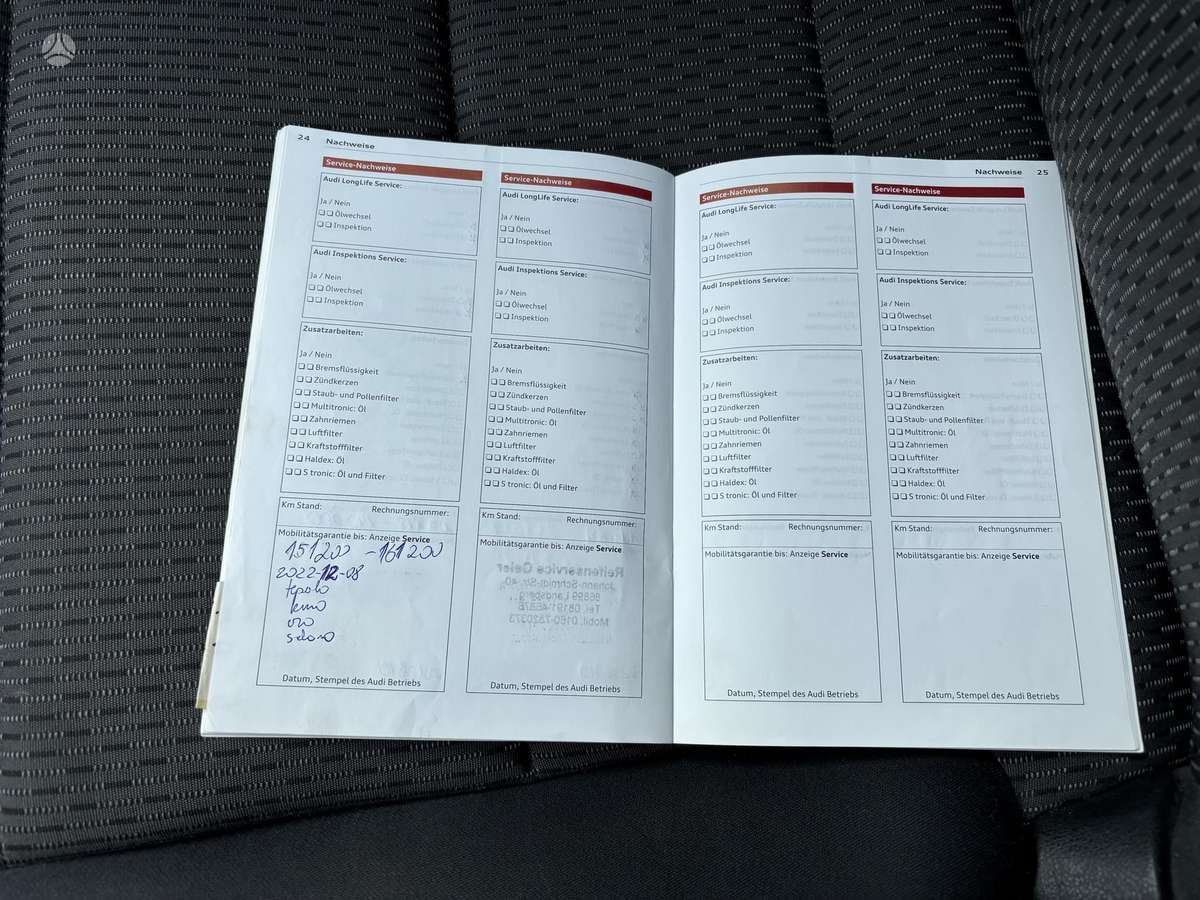 24 Nachweise
Service-Nachweise
Audi LongLife Service:
Ja / Nein
❏ ❏ Ölwechsel
❏ ❏ Inspektion
Audi Inspektions Service:
Ja / Nein
❏ ❏ Ölwechsel
❏ ❏ Inspektion
Zusatzarbeiten:
Ja / Nein
❏ ❏ Bremsflüssigkeit
❏ ❏ Zündkerzen
❏ ❏ Staub- und Pollenfilter
❏ ❏ Multitronic: Öl
❏ ❏ Zahnriemen
❏ ❏ Luftfilter
❏ ❏ Kraftstofffilter
❏ ❏ Haldex: Öl
❏ ❏ S tronic: Öl und Filter
Km Stand: Rechnungsnummer:
Mobilitätsgarantie bis: Anzeige Service
151200 - 161200
2022-12-08
tepalo
kuro
oro
salono
Datum, Stempel des Audi Betriebs
Service-Nachweise
Audi LongLife Service:
Ja / Nein
❏ ❏ Ölwechsel
❏ ❏ Inspektion
Audi Inspektions Service:
Ja / Nein
❏ ❏ Ölwechsel
❏ ❏ Inspektion
Zusatzarbeiten:
Ja / Nein
❏ ❏ Bremsflüssigkeit
❏ ❏ Zündkerzen
❏ ❏ Staub- und Pollenfilter
❏ ❏ Multitronic: Öl
❏ ❏ Zahnriemen
❏ ❏ Luftfilter
❏ ❏ Kraftstofffilter
❏ ❏ Haldex: Öl
❏ ❏ S tronic: Öl und Filter
Km Stand: Rechnungsnummer:
Mobilitätsgarantie bis: Anzeige Service
Reifenservice Geier
Johann-Schmidt-Str. 40
86899 Landsberg
Datum, Stempel des Audi Betriebs
Nachweise 25
Service-Nachweise
Audi LongLife Service:
Ja / Nein
❏ ❏ Ölwechsel
❏ ❏ Inspektion
Audi Inspektions Service:
Ja / Nein
❏ ❏ Ölwechsel
❏ ❏ Inspektion
Zusatzarbeiten:
Ja / Nein
❏ ❏ Bremsflüssigkeit
❏ ❏ Zündkerzen
❏ ❏ Staub- und Pollenfilter
❏ ❏ Multitronic: Öl
❏ ❏ Zahnriemen
❏ ❏ Luftfilter
❏ ❏ Kraftstofffilter
❏ ❏ Haldex: Öl
❏ ❏ S tronic: Öl und Filter
Km Stand: Rechnungsnummer:
Mobilitätsgarantie bis: Anzeige Service
Datum, Stempel des Audi Betriebs
Service-Nachweise
Audi LongLife Service:
Ja / Nein
❏ ❏ Ölwechsel
❏ ❏ Inspektion
Audi Inspektions Service:
Ja / Nein
❏ ❏ Ölwechsel
❏ ❏ Inspektion
Zusatzarbeiten:
Ja / Nein
❏ ❏ Bremsflüssigkeit
❏ ❏ Zündkerzen
❏ ❏ Staub- und Pollenfilter
❏ ❏ Multitronic: Öl
❏ ❏ Zahnriemen
❏ ❏ Luftfilter
❏ ❏ Kraftstofffilter
❏ ❏ Haldex: Öl
❏ ❏ S tronic: Öl und Filter
Km Stand: Rechnungsnummer:
Mobilitätsgarantie bis: Anzeige Service
Datum, Stempel des Audi Betriebs